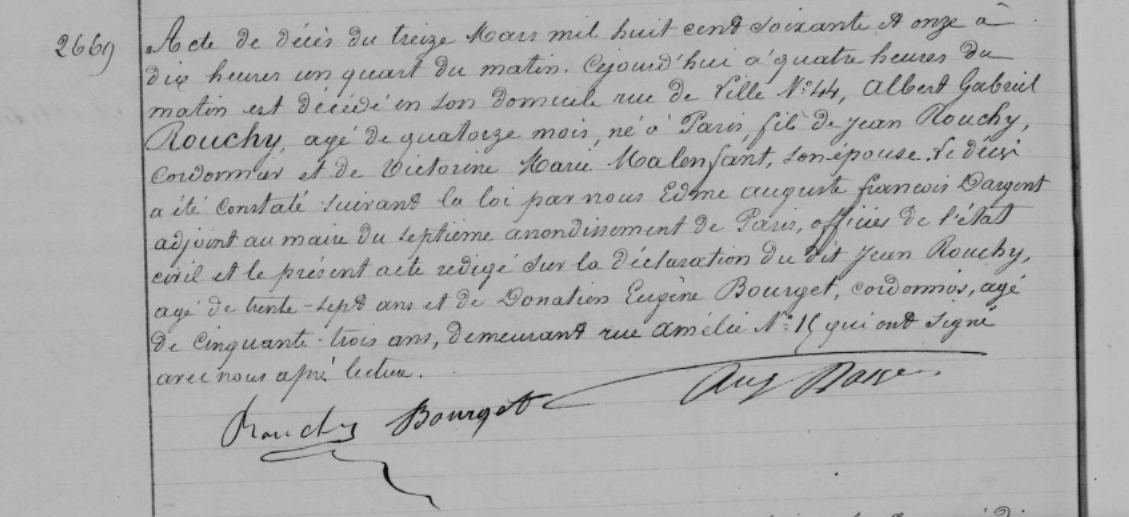 2669
Acte de décès du treize Mars mil huit cent soixante et onze à
dix heures un quart du matin. Cejourd'hui à quatre heures du
matin est décédé en son domicile rue de Ville N: 44, Albert Gabriel
Rouchy, agé de quatorze mois, né à Paris, fils de Jean Rouchy,
Cordonnier et de Victorine Marie Malenfant, son épouse. Le décès
a été Constaté suivant la loi par nous Edme auguste francois Dargent
adjoint au maire du septieme arrondissement de Paris, officier de l'état
civil et le présent acte redigé sur la déclaration du dit Jean Rouchy,
agé de trente-sept ans et de Donatien Eugène Bourget, cordonnier, agé
de Cinquante-trois ans, demeurant rue Amélie N: 15 qui ont signé
avec nous après lecture.
Rouchy Bourget Aug